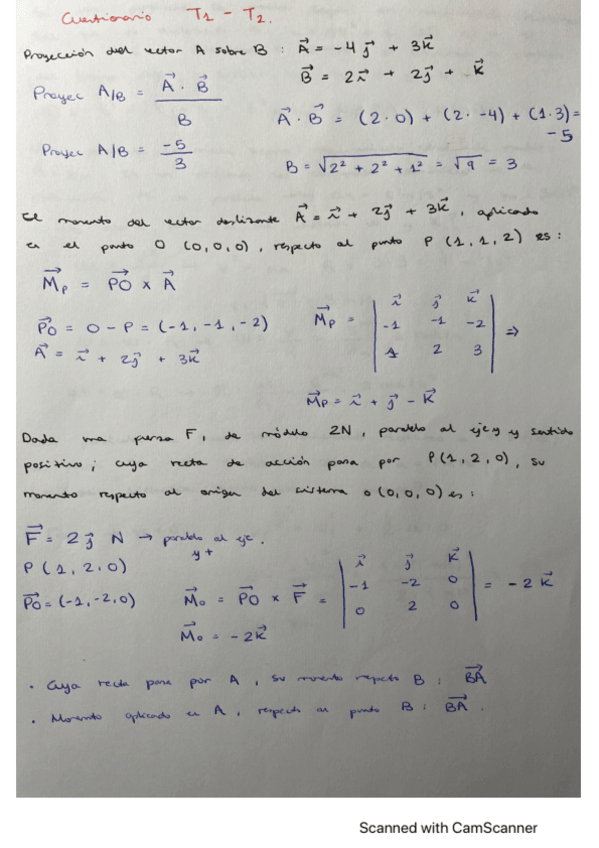 Cuestionario T1 - T2.
Proyección del vector A sobre B : A⃗ = -4 j⃗ + 3k⃗
B⃗ = 2i⃗ + 2j⃗ + k⃗
Proyec A/B = A⃗ · B⃗ / B
A⃗ · B⃗ = (2·0) + (2·-4) + (1·3) = -5
Proyec A/B = -5 / 3
B = √2² + 2² + 1² = √9 = 3
El momento del vector deslizante A⃗ = i⃗ + 2j⃗ + 3k⃗, aplicado
en el punto O (0,0,0), respecto al punto P (1,1,2) es:
M⃗p = PO⃗ x A⃗
PO⃗ = O - P = (-1, -1, -2)
A⃗ = i⃗ + 2j⃗ + 3k⃗
M⃗p = | i⃗ j⃗ k⃗
-1 -1 -2
1 2 3 | =>
M⃗p = i⃗ + j⃗ - k⃗
Dada una fuerza F, de módulo 2N, paralela al eje y y sentido
positivo; cuya recta de acción pasa por P(1,2,0), su
momento respecto al origen del sistema o (0,0,0) es:
F⃗ = 2 j⃗ N → paralelo al eje.
y+
P (1, 2, 0)
PO⃗ = (-1, -2, 0)
M⃗o = PO⃗ x F⃗ = | i⃗ j⃗ k⃗
-1 -2 0
0 2 0 | = -2 k⃗
M⃗o = -2k⃗
· Cuya recta pasa por A, su momento respecto B : BA⃗
· Momento aplicado en A, respecto al punto B : BA⃗.
Scanned with CamScanner